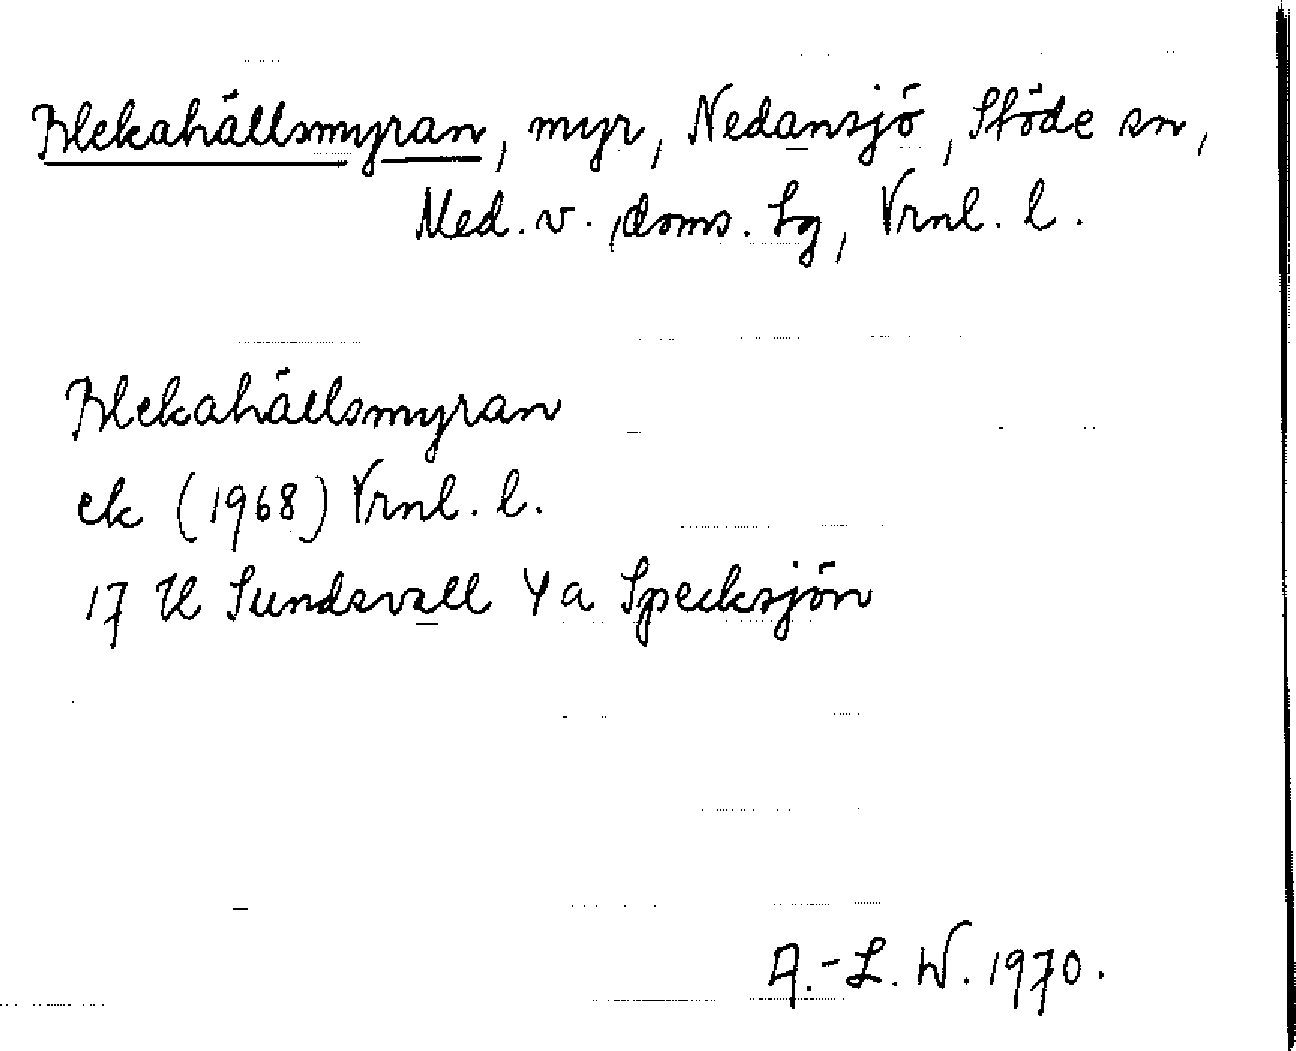 Blekahällsmyran, myr, Nedansjö, Stöde sn,
Med. v. doms. tg, Vrnl. l.
Blekahällsmyran
ek (1968) Vrnl. l.
17 H Sundsvall 4 a Specksjön
A.-L. W. 1970.